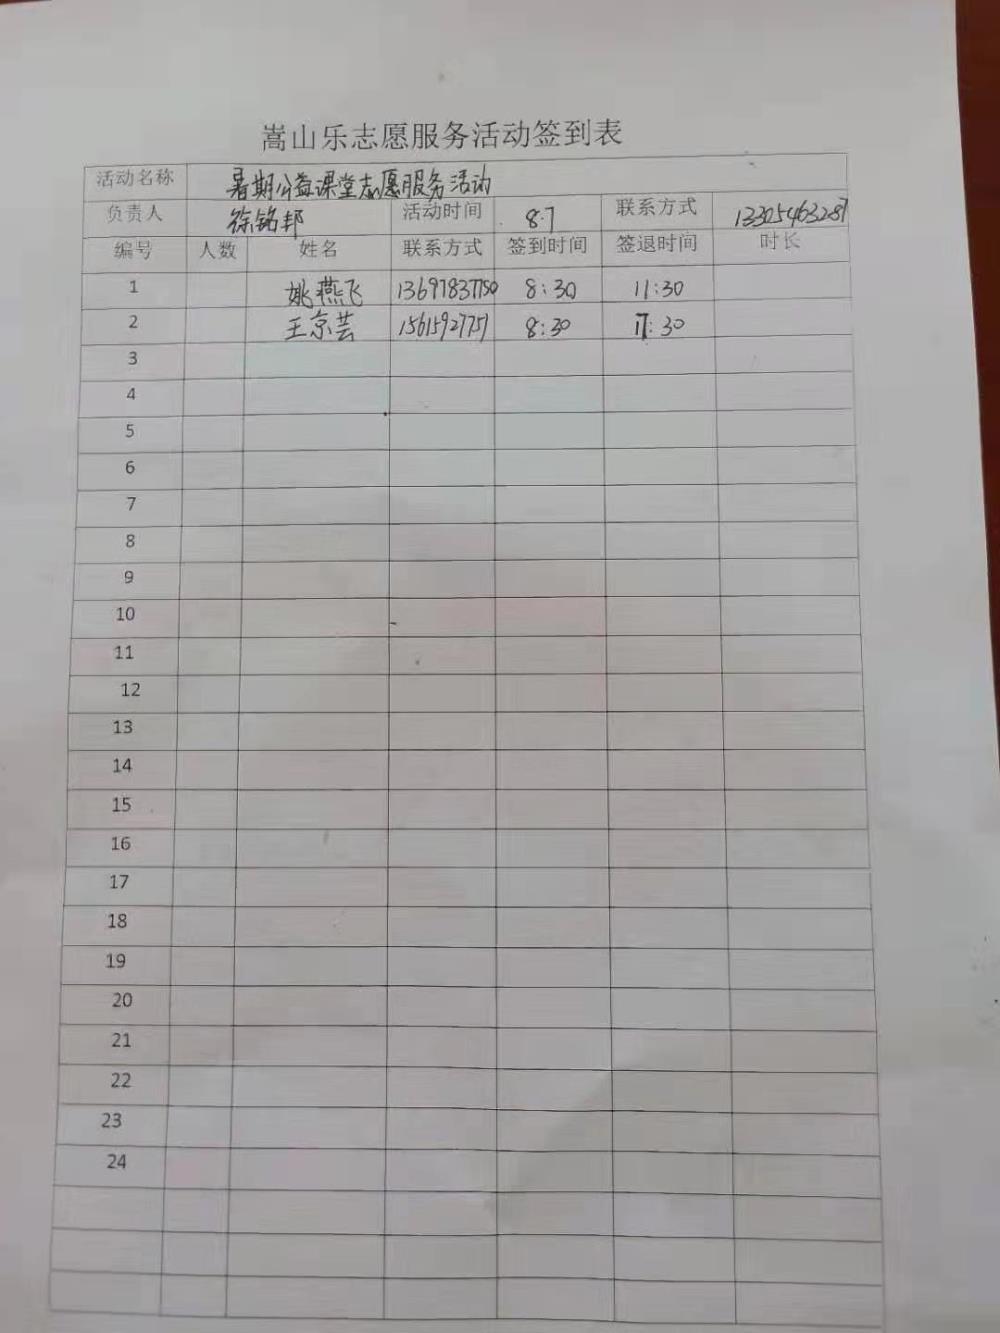 嵩山乐志愿服务活动签到表
活动名称 暑期公益课堂志愿服务活动
负责人 徐铭邦 活动时间 8.7 联系方式 13305463287
编号 人数 姓名 联系方式 签到时间 签退时间 时长
1 姚燕飞 13697837750 8:30 11:30
2 王京芸 15615927757 8:30 11:30
3
4
5
6
7
8
9
10
11
12
13
14
15
16
17
18
19
20
21
22
23
24